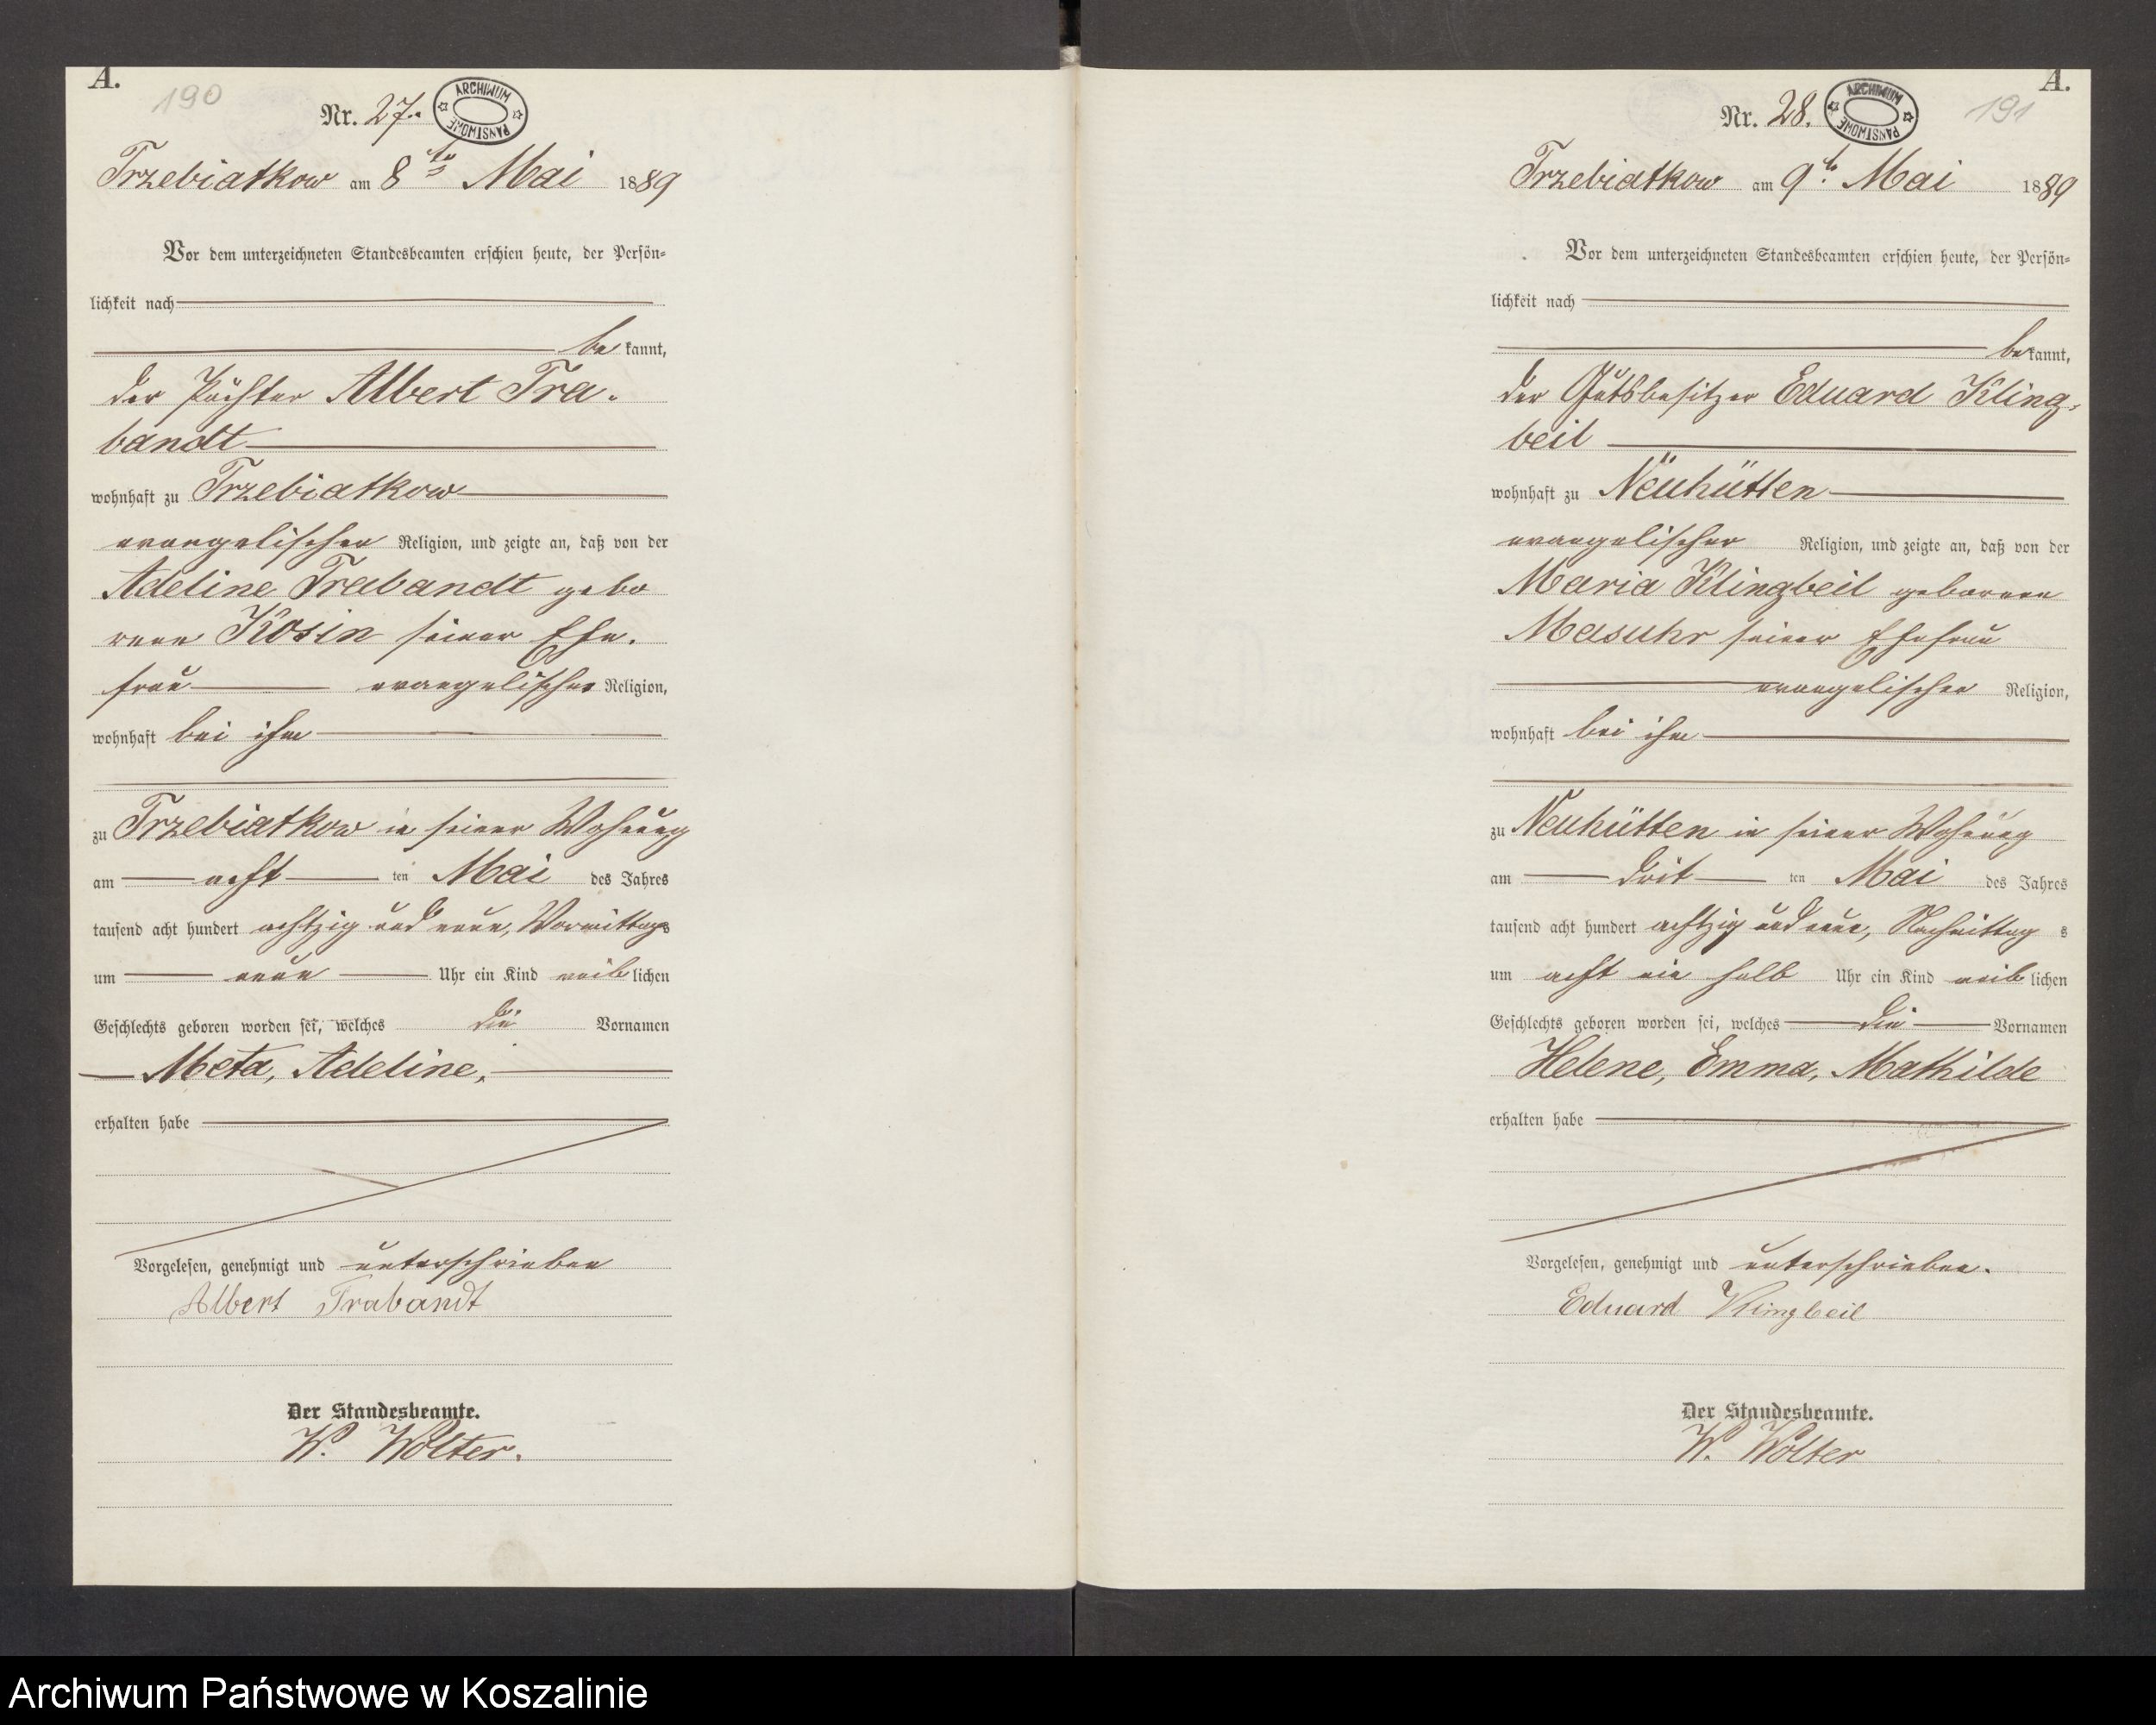 A.
190
Nr. 27.
ARCHIWUM PAŃSTWOWE
Trzebiatkow am 8ten Mai 1889
Vor dem unterzeichneten Standesbeamten erschien heute, der Persön-
lichkeit nach
be kannt,
der Pächter Albert Tra-
bandt
wohnhaft zu Trzebiatkow
evangelischer Religion, und zeigte an, daß von der
Adeline Trabandt gebo
renen Kosin seiner Ehe-
frau evangelischer Religion,
wohnhaft bei ihm
zu Trzebiatkow in seiner Wohnung
am acht ten Mai des Jahres
tausend acht hundert achtzig und neun, Vormittags
um neun Uhr ein Kind weib lichen
Geschlechts geboren worden sei, welches die Vornamen
Meta, Adeline,
erhalten habe
Vorgelesen, genehmigt und unterschrieben
Albert Trabandt
Der Standesbeamte.
W. Wolter.
A.
191
Nr. 28.
ARCHIWUM PAŃSTWOWE
Trzebiatkow am 9t. Mai 1889
Vor dem unterzeichneten Standesbeamten erschien heute, der Persön-
lichkeit nach
be kannt,
der Gutsbesitzer Eduard Kling-
beil
wohnhaft zu Neuhütten
evangelischer Religion, und zeigte an, daß von der
Maria Klingbeil geborenen
Masuhr seiner Ehefrau
evangelischer Religion,
wohnhaft bei ihm
zu Neuhütten in seiner Wohnung
am drit ten Mai des Jahres
tausend acht hundert achtzig und neun, Nachmittag s
um acht ein halb Uhr ein Kind weib lichen
Geschlechts geboren worden sei, welches die Vornamen
Helene, Emma, Mathilde
erhalten habe
Vorgelesen, genehmigt und unterschrieben.
Eduard Klingbeil
Der Standesbeamte.
W. Wolter
Archiwum Państwowe w Koszalinie